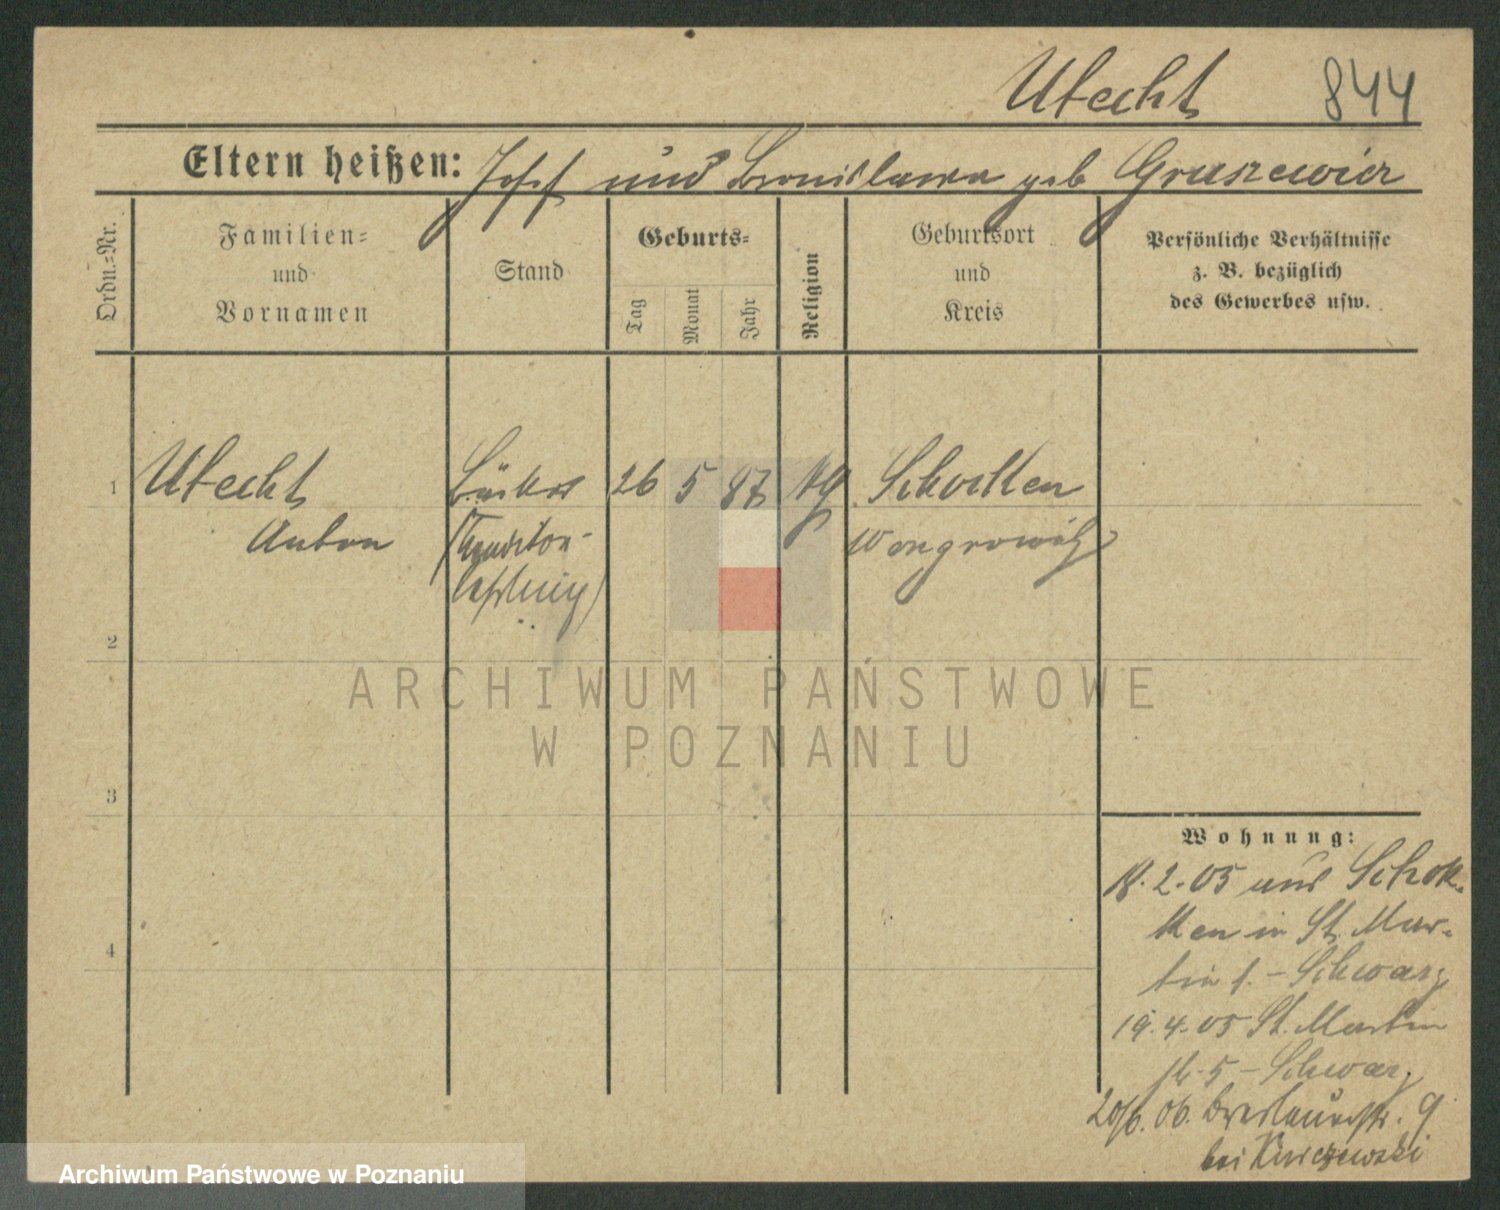 Utecht 844
Eltern heißen: Josef und Bronislawa geb Gruszewicz
Ordn.-Nr.
Familien-
und
Vornamen
Stand
Geburts-
Tag
Monat
Jahr
Religion
Geburtsort
und
Kreis
Persönliche Verhältnisse
z. B. bezüglich
des Gewerbes usw.
1 Utecht Bäcker 26 5 87 Schokken
Anton (Konditor- Wongrowitz
lehrling)
2
3
4
Wohnung:
18.2.05 aus Schok-
ken in St. Mar-
tin 1. - Schwarz
19.4.05 St. Martin
5 - Schwarz
20/6.06. Breslauerstr. 9
bei
ARCHIWUM PAŃSTWOWE
W POZNANIU
Archiwum Państwowe w Poznaniu